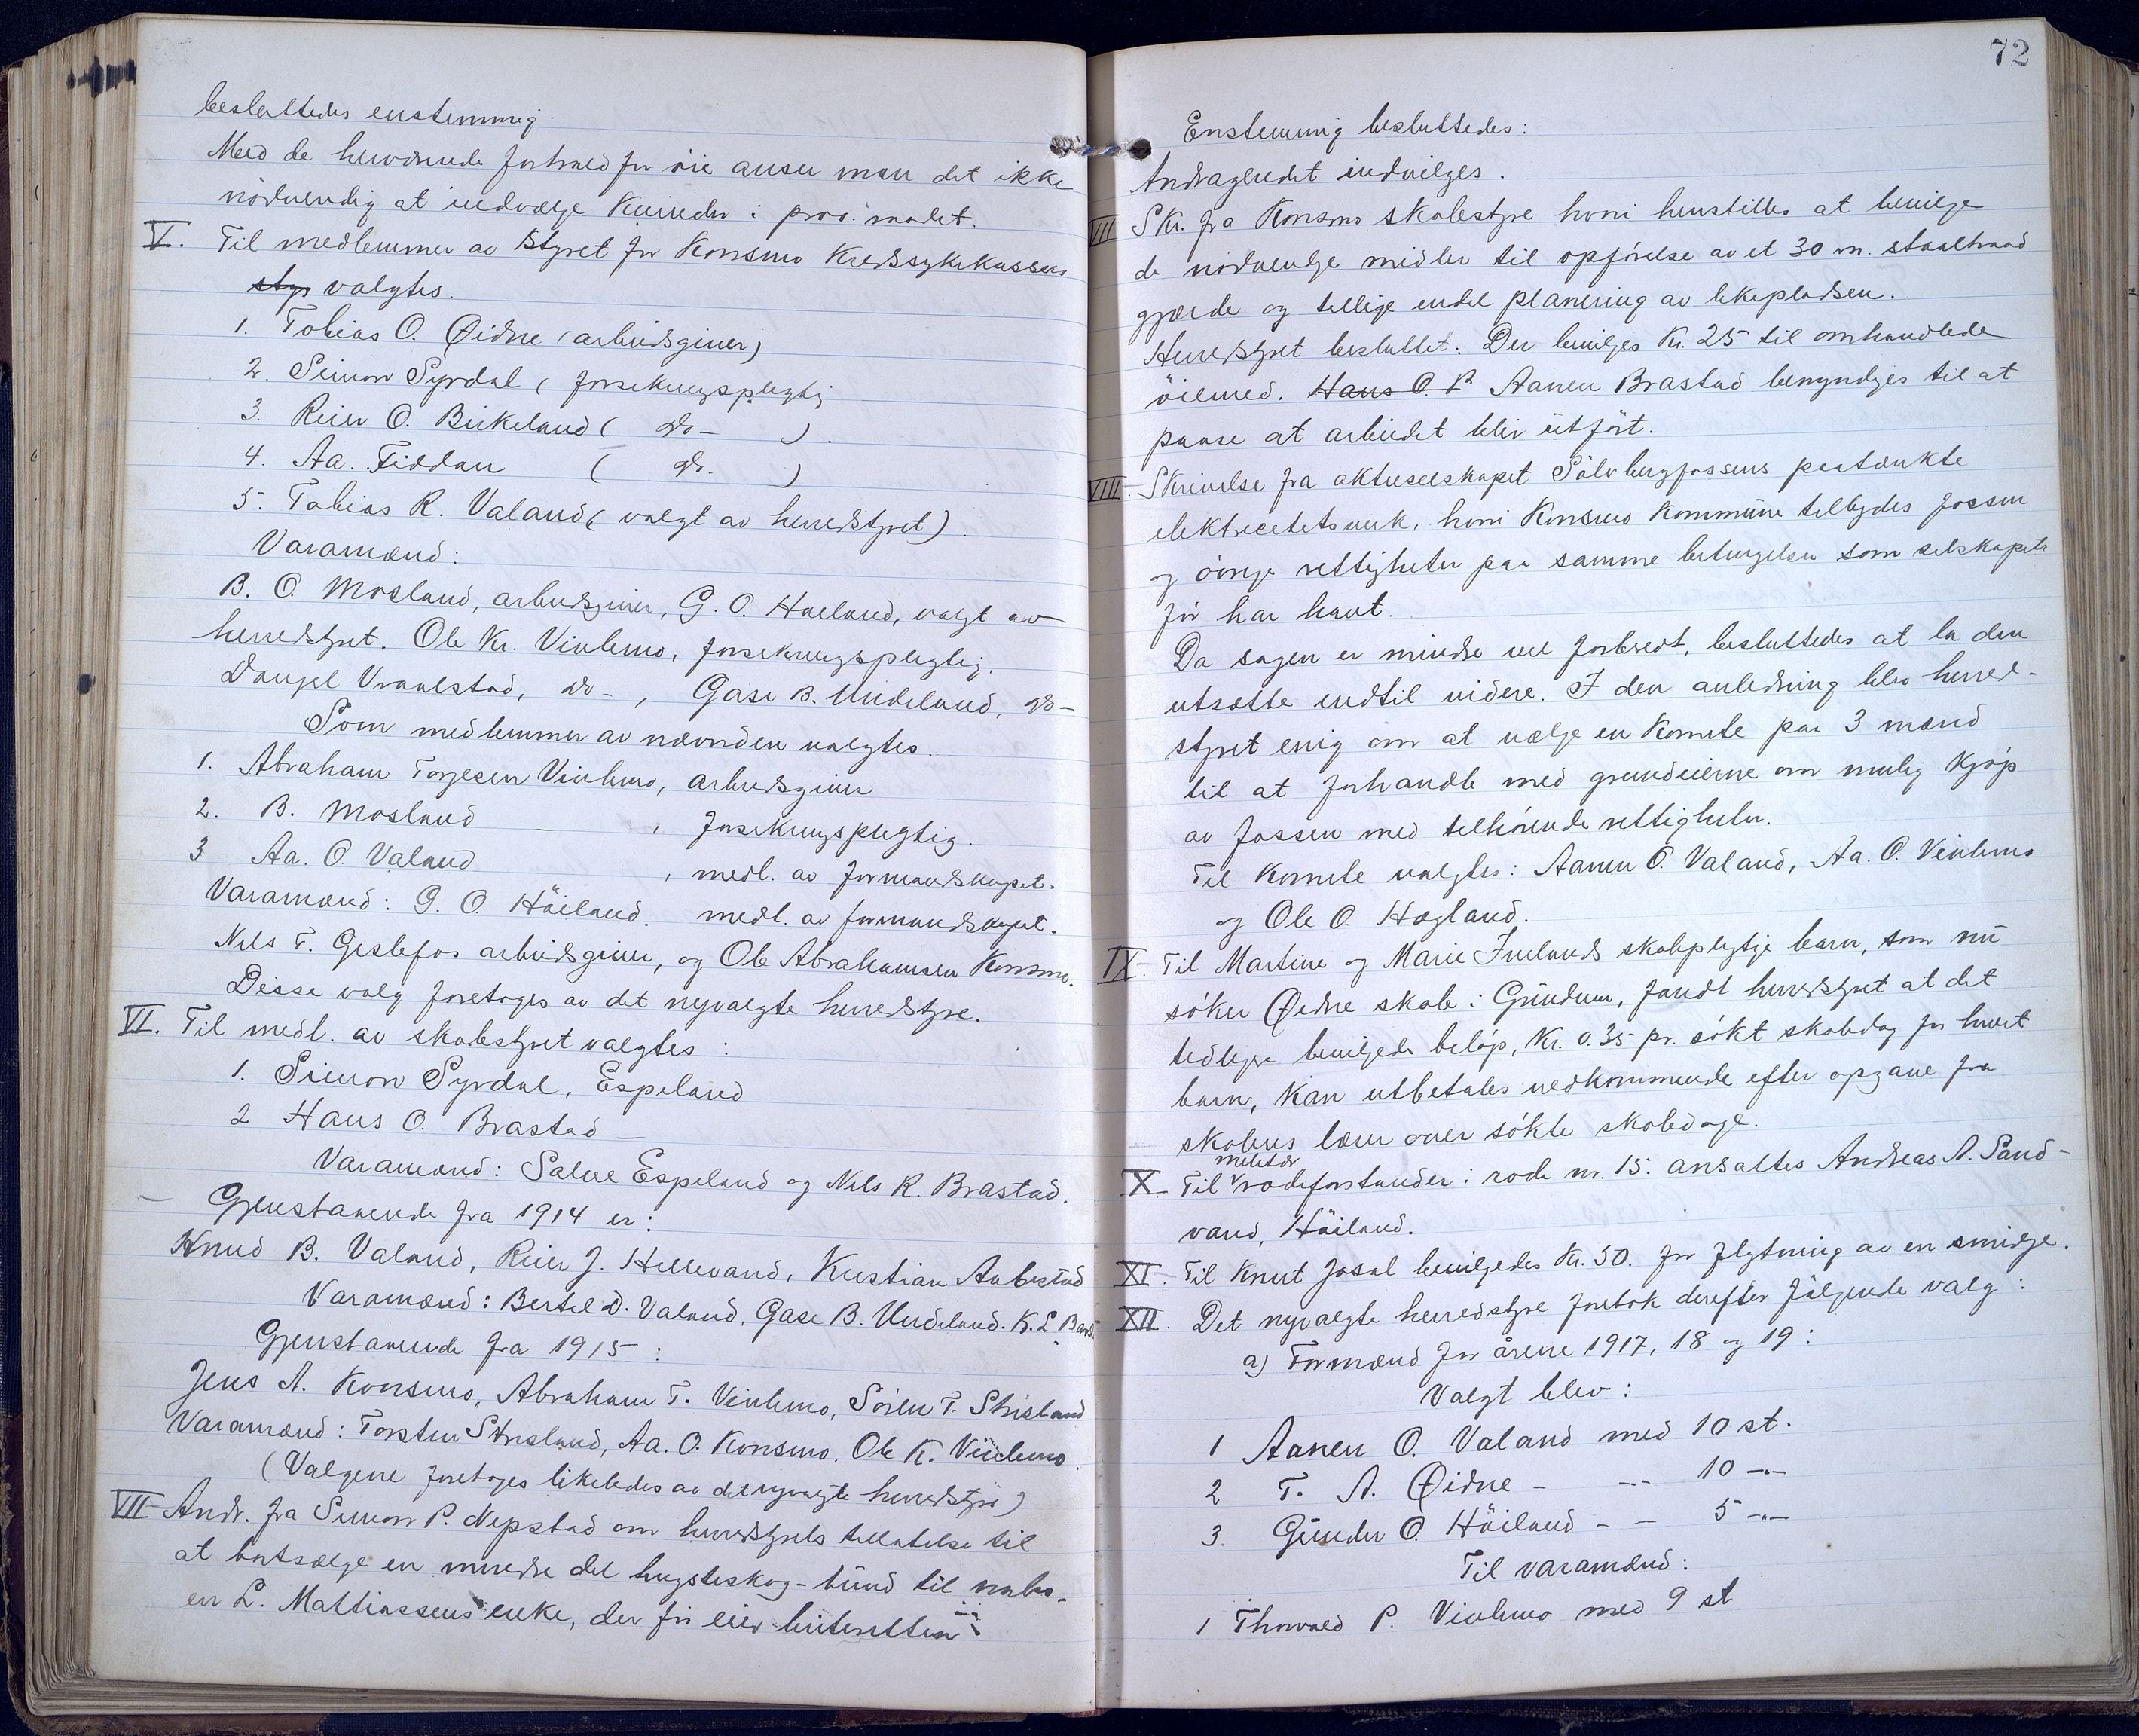 besluttedes enstemmig.
Med de herværende forhold for öie anser man det ikke
nödvendig at indvælge kvinder i prov. raadet.
V. Til medlemmer av styret for Konsmo Kredssykekasses
styr valgtes.
1. Tobias O. Øidne (arbeidsgiver)
2. Simon Syrdal (forsikringspligtig
3. Reier O. Birkeland ( do - ).
4. Aa. Fiddan ( do. )
5. Tobias R. Valand (valgt av herredstyret).
Varamænd:
B. O. Mosland, arbeidsgiver, G. O. Høiland, valgt av
herredstyret. Ole Kr. Vivlemo, forsikringspligtig.
Daniel Vraalstad, do - , Gase B. Undeland, do -
Som medlemmer av nævnden valgtes.
1. Abraham Torjesen Vivlemo, arbeidsgiver
2. B. Mosland - , forsikringspligtig.
3 Aa. O. Valand , medl. av formandskapet.
Varamænd: G. O. Höiland. medl. av formandskapet.
Nils T. Geslefos arbeidsgiver, og Ole Abrahamsen Konsmo.
Disse valg foretoges av det nyvalgte herredstyre.
VI. Til medl. av skolestyret valgtes:
1. Simon Syrdal, Espeland
2 Hans O. Brastad -
Varamænd: Salve Espeland og Nils R. Brastad.
- Gjenstaaende fra 1914 er:
Knud B. Valand, Reier J. Hellevand, Kristian Aabestad
Varamænd: Bertel D. Valand, Gase B. Undeland. K. L.
Gjenstaaende fra 1915:
Jens A. Konsmo, Abraham T. Vivlemo, Sören T. Strisland
Varamænd: Torsten Strisland, Aa. O. Konsmo. Ole K. Vivlemo.
(Valgene foretoges likeledes av det nyvalgte herredstyre)
VII Andr. fra Simon P. Nepstad om herredstyrets tillatelse til
at bortsælge en mindre del hugsteskog-bund til nabo-
en L. Mattiassens enke, der för eier beiteretten
72
Enstemmig besluttedes:
Andragendet indvilges.
VII Skr. fra Konsmo skolestyre hvori henstilles at bevilge
de nödvendige midler til opförelse av et 30 m. staaltraad
gjærde og tillige endel planering av lekepladsen.
Herredstyret besluttet: Der bevilges Kr. 25 til omhandlede
öiemed. Hans O. B Aanen Brastad bemyndiges til at
paase at arbeidet blir utfört.
VIII. Skrivelse fra aktieselskapet Sölvbergfossens paatænkte
elektricetetsverk, hvori Konsmo Kommune tilbydes fossen
og övrige rettigheter paa samme betingelser som selskapet
för har havt.
Da sagen er mindre vel forberedt, besluttedes at la den
utsætte indtil videre. I den anledning blev herred-
styret enig om at vælge en komite paa 3 mænd
til at forhandle med grundeierne om mulig kjöp
av fossen med tilhörende rettigheter.
Til komite valgtes: Aanen O. Valand, Aa. O. Vivlemo
og Ole O. Hægland.
IX. Til Martine og Marie Ivelands skolepligtige barn, som nu
söker Øidne skole i Grindum, fandt herredstyret at det
tidligere bevilgede belöp, Kr. 0.35 pr. sökt skoledag for hvert
barn, kan utbetales vedkommende efter opgave fra
skolens lærer over sökte skoledage.
X. Til militær rodeforstander i rode nr. 15. ansattes Andreas A. Sand-
vand, Höiland.
XI. Til Knut Josal bevilgedes Kr. 50. for flytning av en smidje.
XII. Det nyvalgte herredstyre foretok derefter fölgende valg:
a) Formænd for årene 1917, 18 og 19:
Valgt blev:
1 Aanen O. Valand med 10 st.
2 T. A. Øidne - --- 10 -"-
3. Gunder O. Höiland - - 5 -"-
Til varamænd:
1 Thorvald P. Vivlemo med 9 st